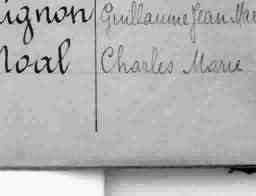 ignon Guillaume Jean Mar
Noal Charles Marie